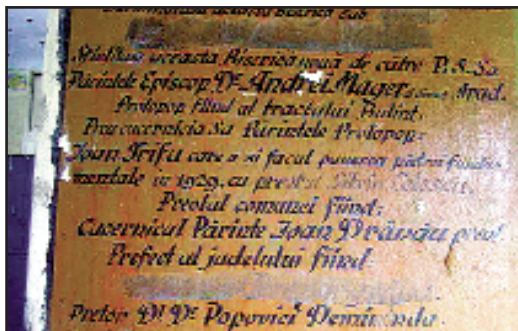 Biserica sub
Sfințitu-s'a aceasta Biserică nouă de către P. S. Sa
Părintele Episcop Dr. Andrei Mager Arad.
Protopop fiind al tractului Balinț:
Prea cucernicia Sa Părintele Protopop:
Ioan Trifu care a si facut punerea pietrei funda-
mentale in 1929. cu preotul Silviu
Preotul comunei fiind:
Cucernicul Părinte Ioan Drăgău preot
Prefect al județului fiind
Pretor Dl Dr. Popovici